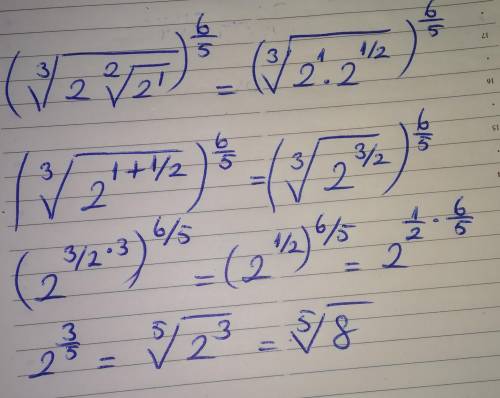 (∛(2 ²√(2¹)))^(6/5) = (∛(2¹ · 2^(1/2)))^(6/5)
(∛(2^(1+1/2)))^(6/5) = (∛(2^(3/2)))^(6/5)
(2^(3/2·3))^(6/5) = (2^(1/2))^(6/5) = 2^(1/2 · 6/5)
2^(3/5) = ⁵√(2³) = ⁵√8